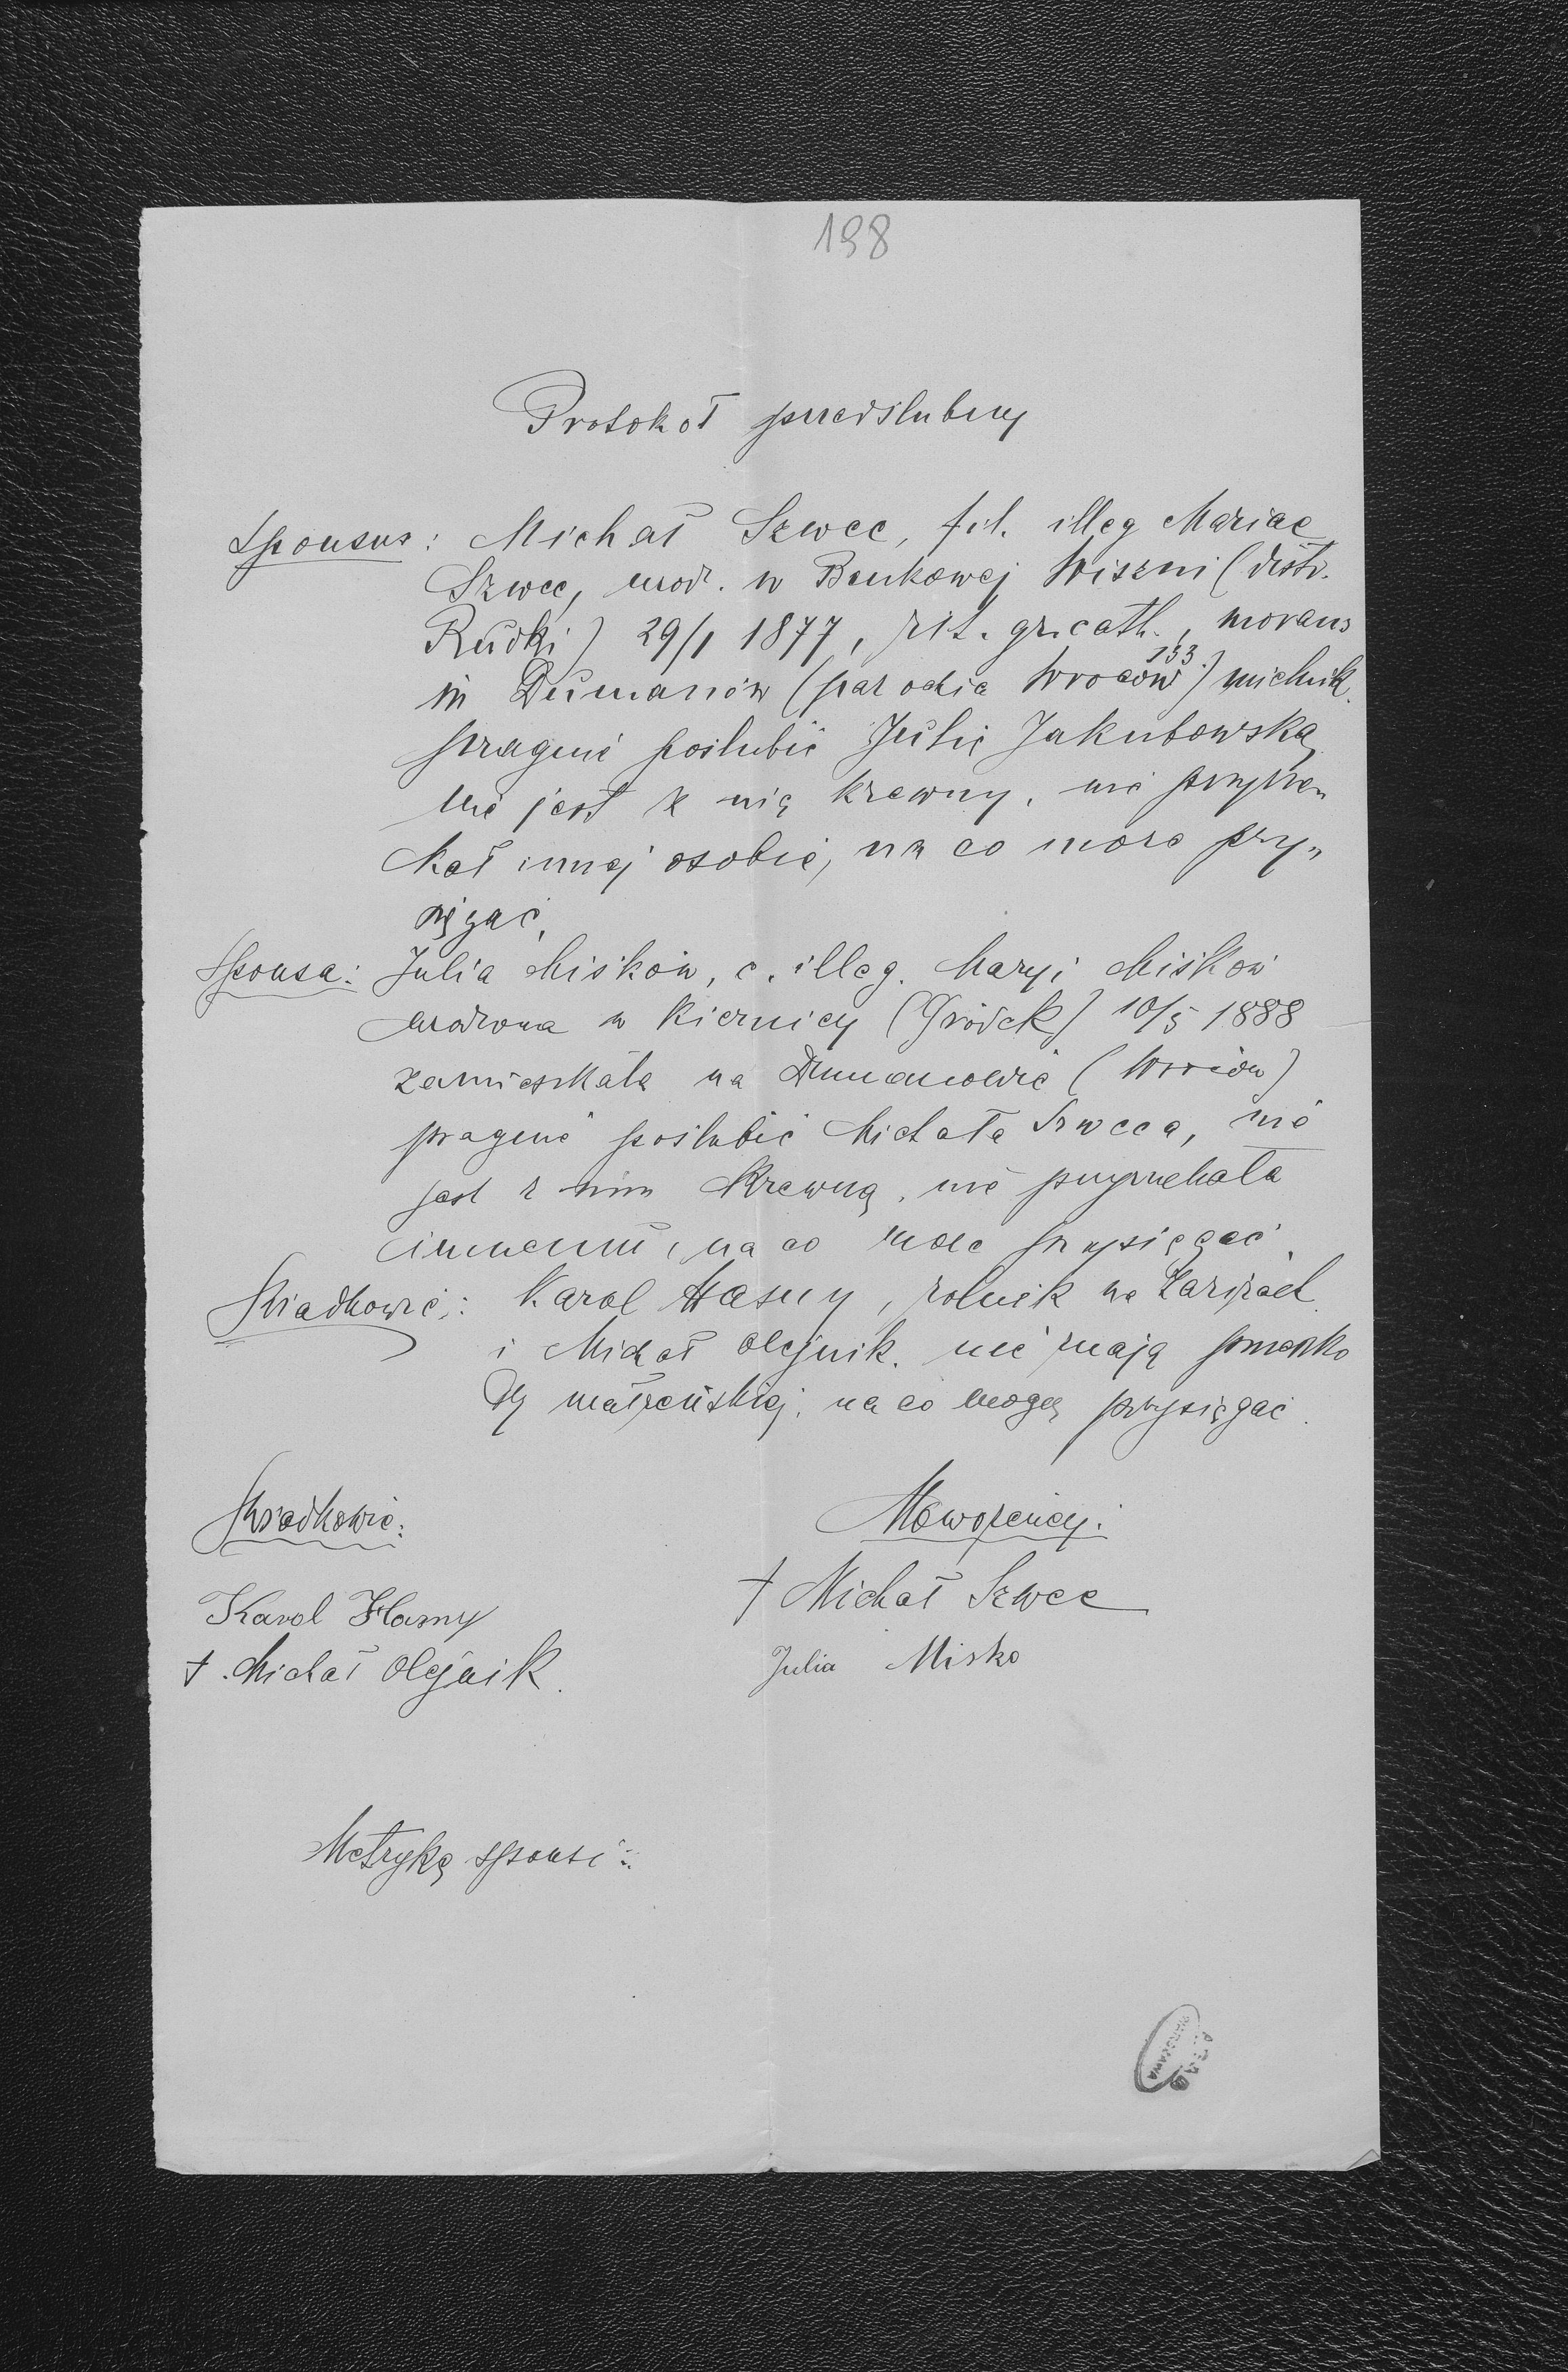 198
Protokoł przedślubny
Sponsus: Michał Szwec, fil. illeg Mariae
Szwec, urod. w Beńkowej Wiszni (distr.
Rudki) 29/1 1877, rit. gr. cath., morans
in Dumanów (parochia Wroców 133.)
pragnie poślubić Julię Jakubowską
nie jest z nią krewny, nie przyrze„
kał innej osobie, na co może przy„
sięgać.
Sponsa: Julia Miśków, c. illeg. Maryi Miśków
urodzona w Kiernicy (Gródek) 10/5 1888
zamieszkała na Dumanowie (Wroców)
pragnie poślubić Michała Szweca, nie
jest z nim krewną, nie przyrzekała
innemu, na co może przysięgać.
Świadkowie: Karol Hasny, rolnik na
i Michał Olejnik. nie mają przeszko
dy małżeńskiej, na co mogą przysięgać.
Świadkowie: Nowożeńcy:
Karol Hasny † Michał Szwec
† Michał Olejnik. Julia Misko
Metrykę sponsi:
WARSZAWA